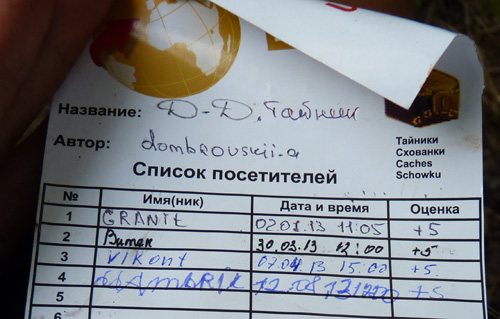 Название: Д-Д. Тайник
Автор: dombrovskii-a
Тайники
Схованки
Caches
Schowku
Список посетителей
№ Имя(ник) Дата и время Оценка
1 GRANIt 02.01.13 11:05 +5
2 Витек 30.03.13 12:00 +5
3 VIKont 07.04.13 15.00 +5.
4 +5
5
6